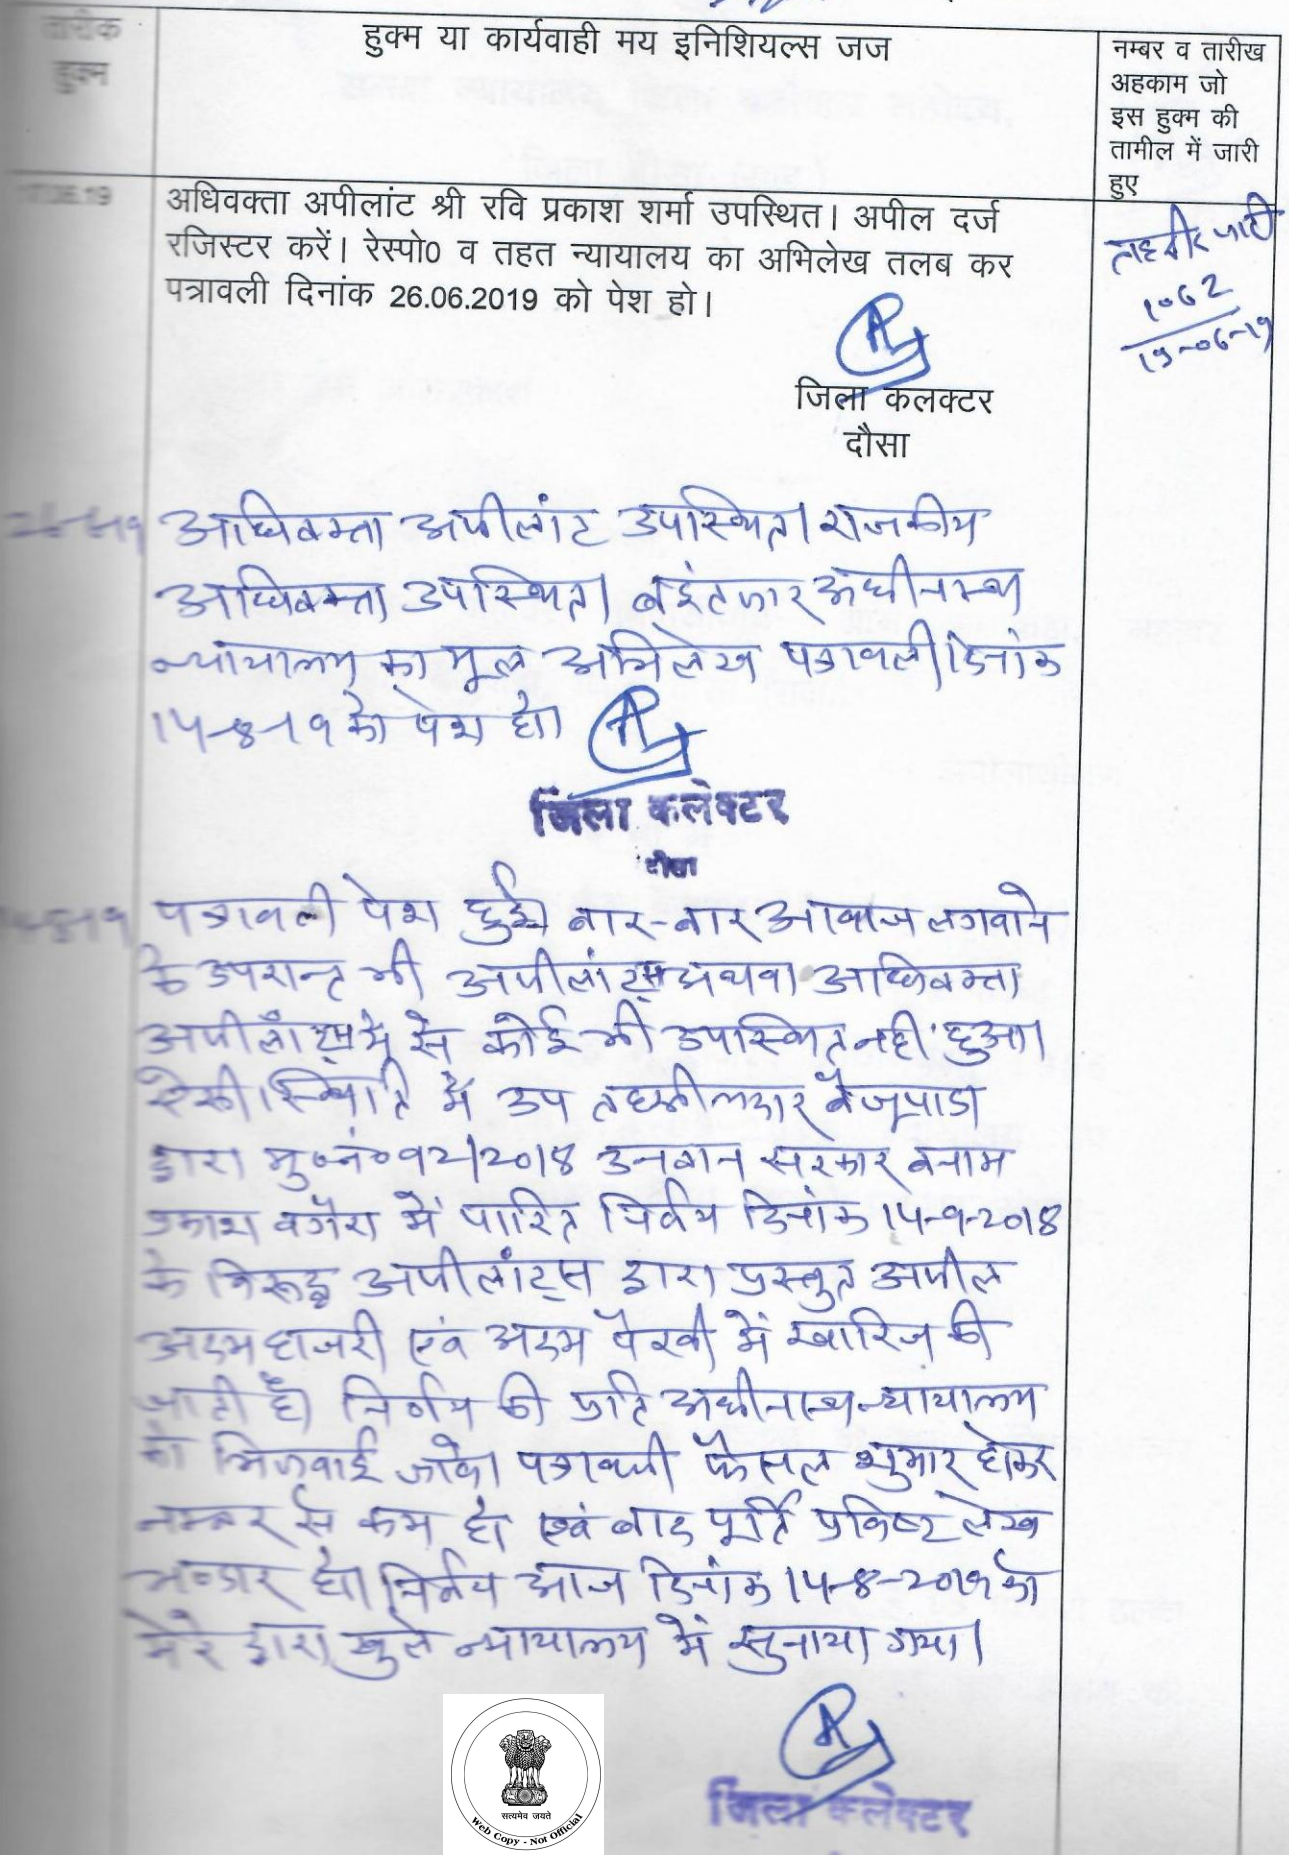 तारीख
हुक्म
हुक्म या कार्यवाही मय इनिशियल्स जज
नम्बर व तारीख
अहकाम जो
इस हुक्म की
तामील में जारी
हुए
.06.19
अधिवक्ता अपीलांट श्री रवि प्रकाश शर्मा उपस्थित। अपील दर्ज
रजिस्टर करें। रेस्पो0 व तहत न्यायालय का अभिलेख तलब कर
पत्रावली दिनांक 26.06.2019 को पेश हो।
जारी
1062
19-06-19
जिला कलक्टर
दौसा
अधिवक्ता अपीलांट उपस्थित। राजकीय
अधिवक्ता उपस्थित। बइंतजार अधीनस्थ
न्यायालय का मूल अभिलेख पत्रावली दिनांक
14-8-19 को पेश हो।
जिला कलेक्टर
दौसा
पत्रावली पेश हुई। बार-बार आवाज लगवाने
के उपरान्त भी अपीलांट्स अथवा अधिवक्ता
अपीलांट्स में से कोई भी उपस्थित नहीं हुआ।
ऐसी स्थिति में उप तहसीलदार बैजूपाडा
द्वारा मु०नं० 92/2018 उनवान सरकार बनाम
प्रकाश वगैरा में पारित निर्णय दिनांक 14-9-2018
के विरूद्ध अपीलांट्स द्वारा प्रस्तुत अपील
अदम हाजरी एवं अदम पैरवी में खारिज की
जाती है। निर्णय की प्रति अधीनस्थ न्यायालय
को भिजवाई जावे। पत्रावली फैसल शुमार होकर
नम्बर से कम हो एवं बाद पूर्ति प्रविष्ट लेख
भण्डार हो। निर्णय आज दिनांक 14-8-2019 को
मेरे द्वारा खुले न्यायालय में सुनाया गया।
सत्यमेव जयते
Web Copy - Not Official
जिला कलेक्टर